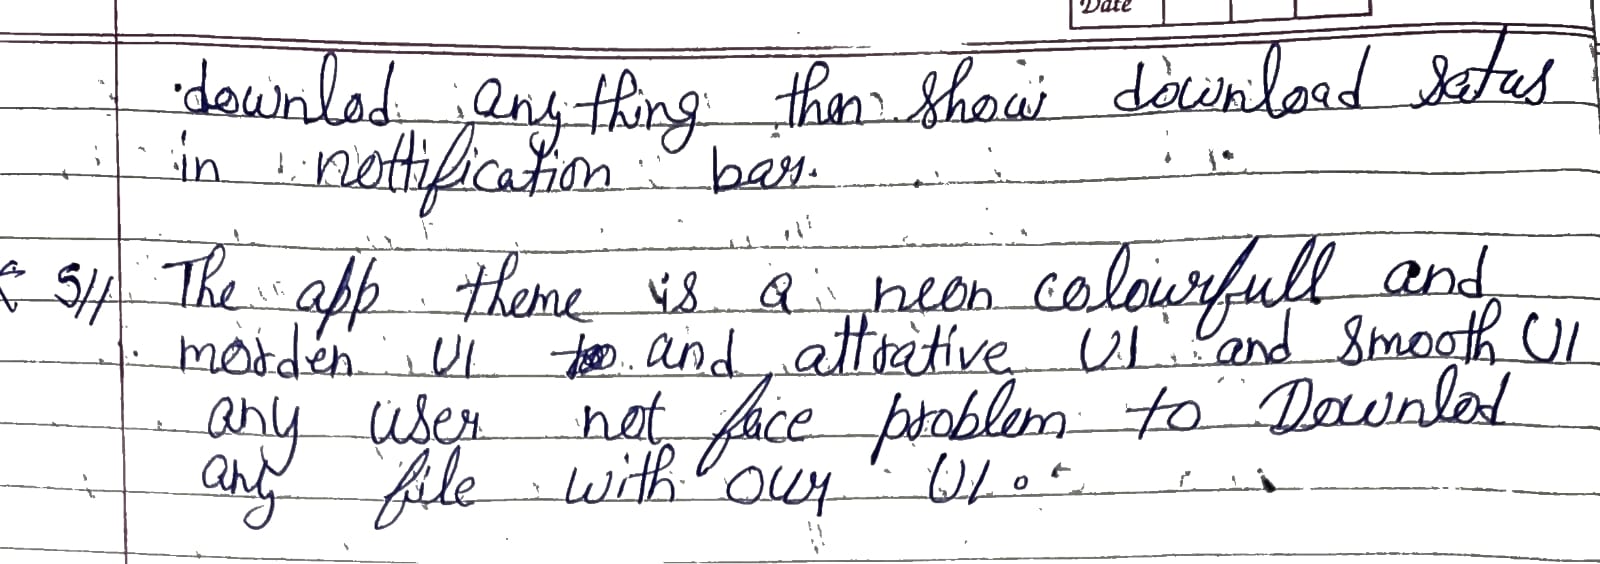 Date
downlod any thing then show download satus
in nottification bar.
5// The app theme is a neon colourfull and
morden UI and attrative UI and smooth UI
any user not face problem to Downlod
any file with our UI.